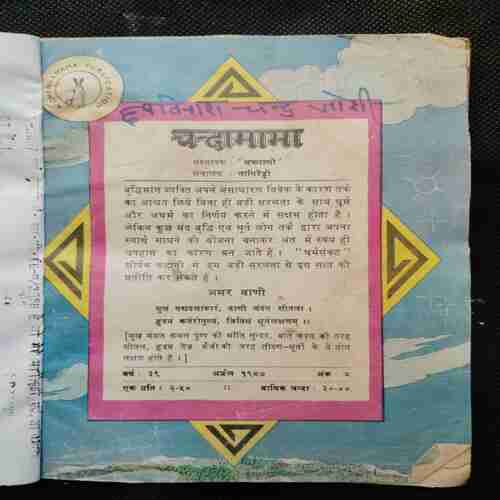 CHANDAMAMA PUBLICATION
अविनाश चन्द्र जोशी
चन्दामामा
संस्थापक : 'चक्रपाणी'
संचालक : नागिरेड्डी
बुद्धिमान व्यक्ति अपने असाधारण विवेक के कारण तर्क
का आश्रय लिये बिना ही बड़ी सरलता के साथ धर्म
और अधर्म का निर्णय करने में सक्षम होता है ।
लेकिन कुछ मंद बुद्धि एवं धूर्त लोग तर्क द्वारा अपना
स्वार्थ साधने की योजना बनाकर अंत में स्वयं ही
उपहास का कारण बन जाते हैं । "धर्मसंकट"
शीर्षक कहानी में हम बड़ी सरलता से इस सत्य की
प्रतीति कर सकते हैं ।
अमर वाणी
मुखं पद्मदलाकारं, वाणी चंदन शीतला ।
हृदयं कर्तरीतुल्यं, त्रिविधं धूर्तलक्षणम् ।।
[मुख मंडल कमल पुष्प की भाँति सुन्दर, बातें चंदन की तरह
शीतल, हृदय तेज़ कैंची की तरह तीक्ष्ण-धूर्तों के ये तीन
लक्षण होते हैं ।]
वर्ष : ३९ अप्रैल १९८७ अंक : ८
एक प्रति : २-५० :: वार्षिक चन्दा : ३०-००